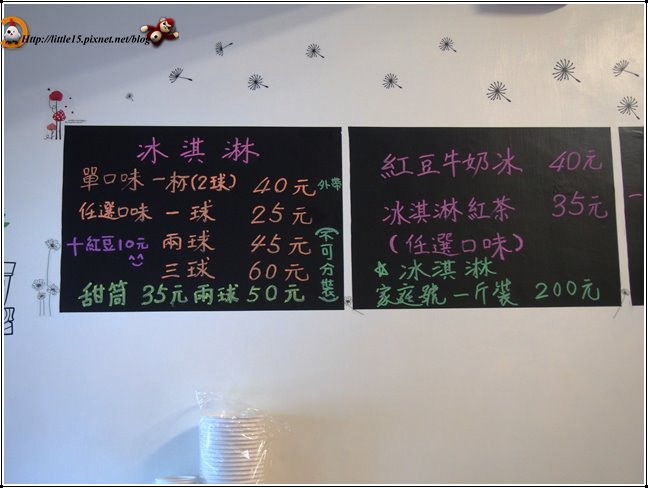 Http://little15.pixnet.net/blog
冰淇淋
單口味一杯(2球) 40元 外帶
任選口味 一球 25元
十紅豆10元 兩球 45元
三球 60元
(不可分裝)
甜筒 35元 兩球 50元
紅豆牛奶冰 40元
冰淇淋紅茶 35元
(任選口味)
冰淇淋
家庭號一斤裝 200元